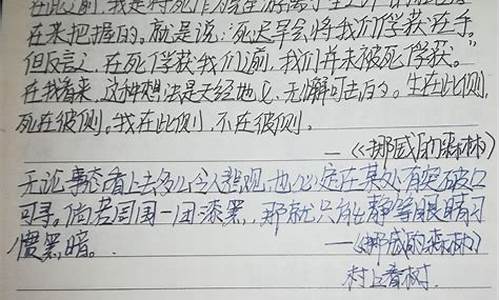 在此之前,我是将死作为完全游离于生之外的独立存
在来把握的,就是说:“死迟早会将我们俘获在手。
但反言之,在死俘获我们之前,我们并未被死俘获。”
在我看来,这种想法是天经地义、无懈可击的。生在此侧,
死在彼侧。我在此侧,不在彼侧。
——《挪威的森林》
无论事态看上去多么令人悲观,也必定在某处有突破口
可寻。倘若周围一团漆黑,那就只能静等眼睛习
惯黑暗。
——《挪威的森林》
村上春树